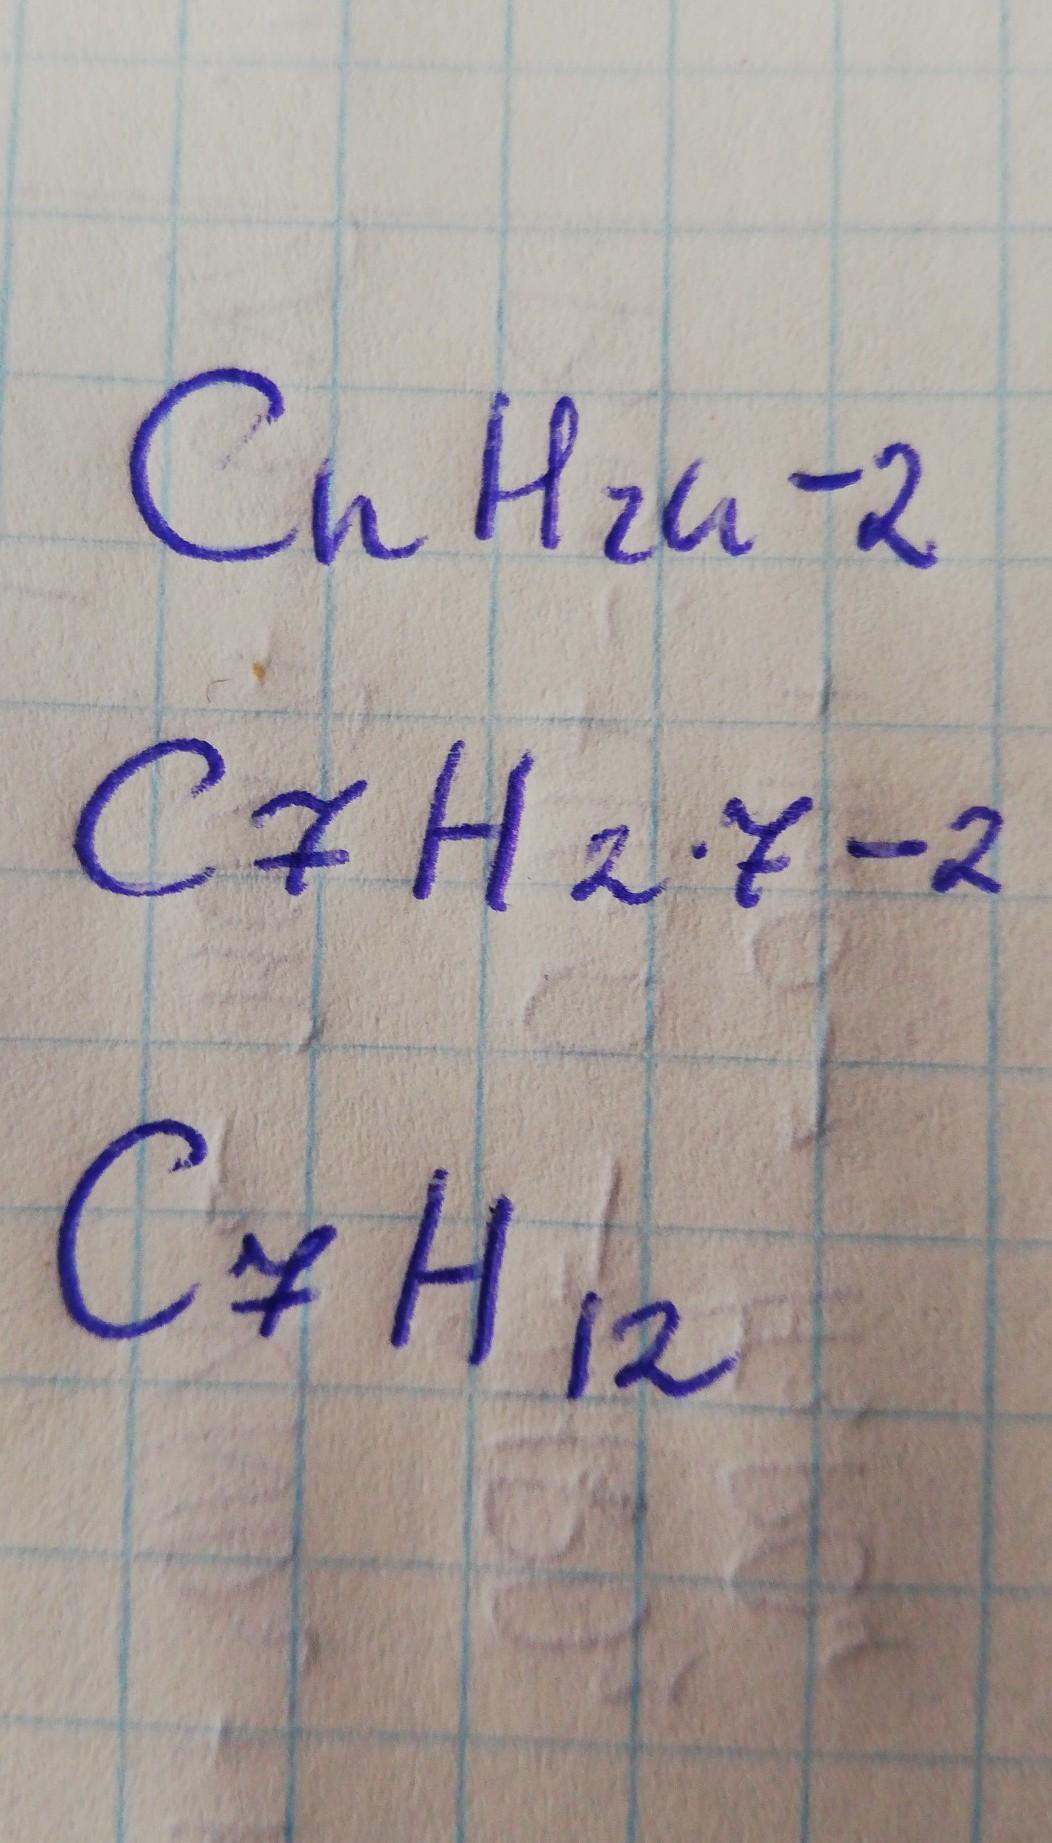 CnH2n-2
C7H2·7-2
C7H12